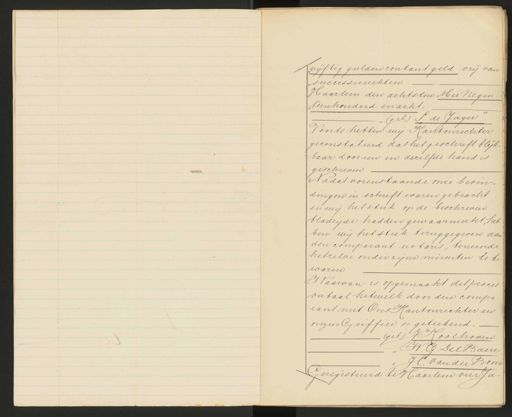 vijftig gulden contant geld vrij van
successierechten
Haarlem den achtsten Mei Negen
tienhonderd en acht.
(get) S. de Jager"
Voorts hebben wij Kantonrechter
geconstateerd dat het geschrift blijk
baar door een en dezelfde hand is
geschreven
Nadat vorenstaande onze bevin-
dingen in schrift waren gebracht
en wij het stuk op de beschreven
bladzijde hadden gewaarmerkt, heb
ben wij het stuk teruggegeven aan
den comparant notaris, teneinde
hetzelve onder zijne minuten te be
waren
Waarvan is opgemaakt dit proces
verbaal hetwelk door den compa
rant met Ons Kantonrechter en
onzen Griffier is geteekend.
(get)
W. G. del Baere
J. C. van der
Geregistreerd te Haarlem